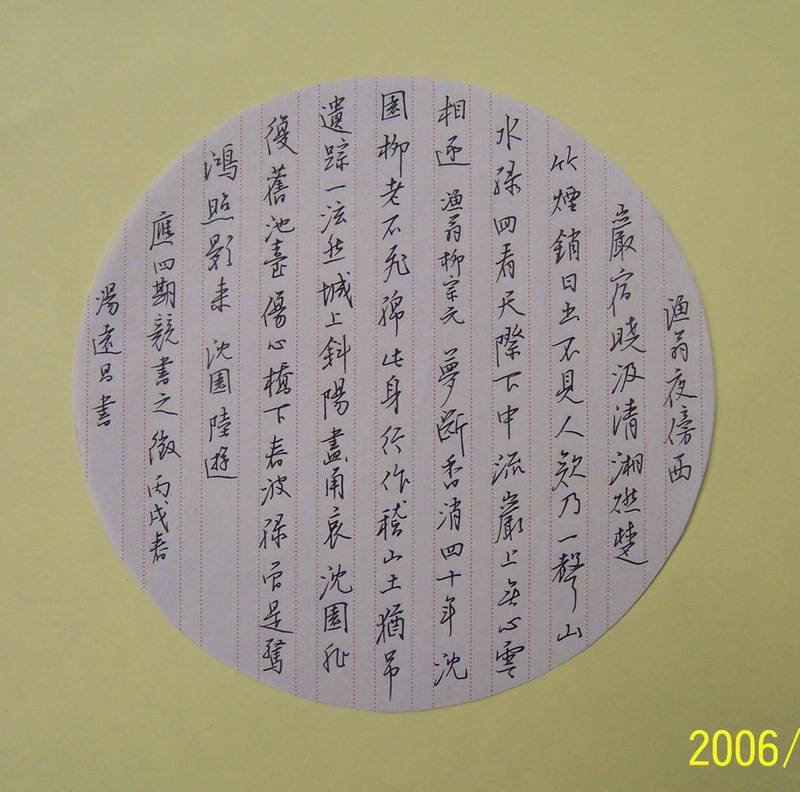 漁翁夜傍西
巖宿曉汲清湘燃楚
竹煙銷日出不見人欸乃一聲山
水綠回看天際下中流巖上無心雲
相逐 漁翁柳宗元 夢斷香消四十年沈
園柳老不飛綿此身行作稽山土猶吊
遺踪一泫然城上斜陽畫甬哀沈園非
復舊池臺傷心橋下春波綠曾是驚
鴻照影來 沈園陸遊
應四期競書之徵丙戌春
湯遠昌書
2006/